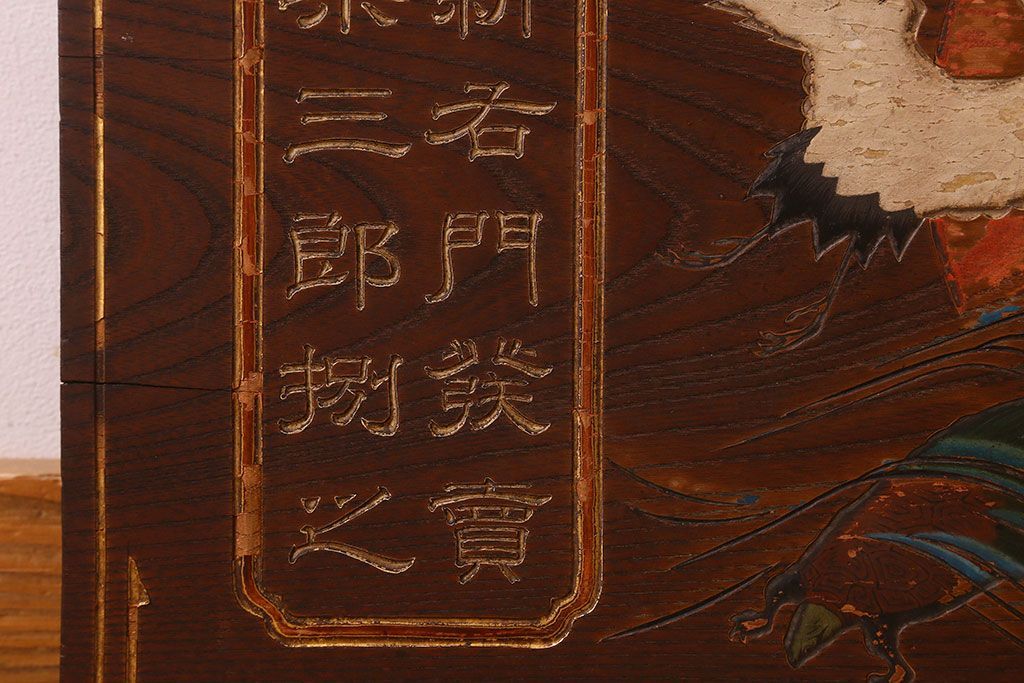 新右門發賣
三郎捌之